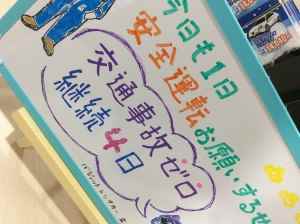 今日も1日
安全運転お願いするぜ
交通事故ゼロ
継続4日